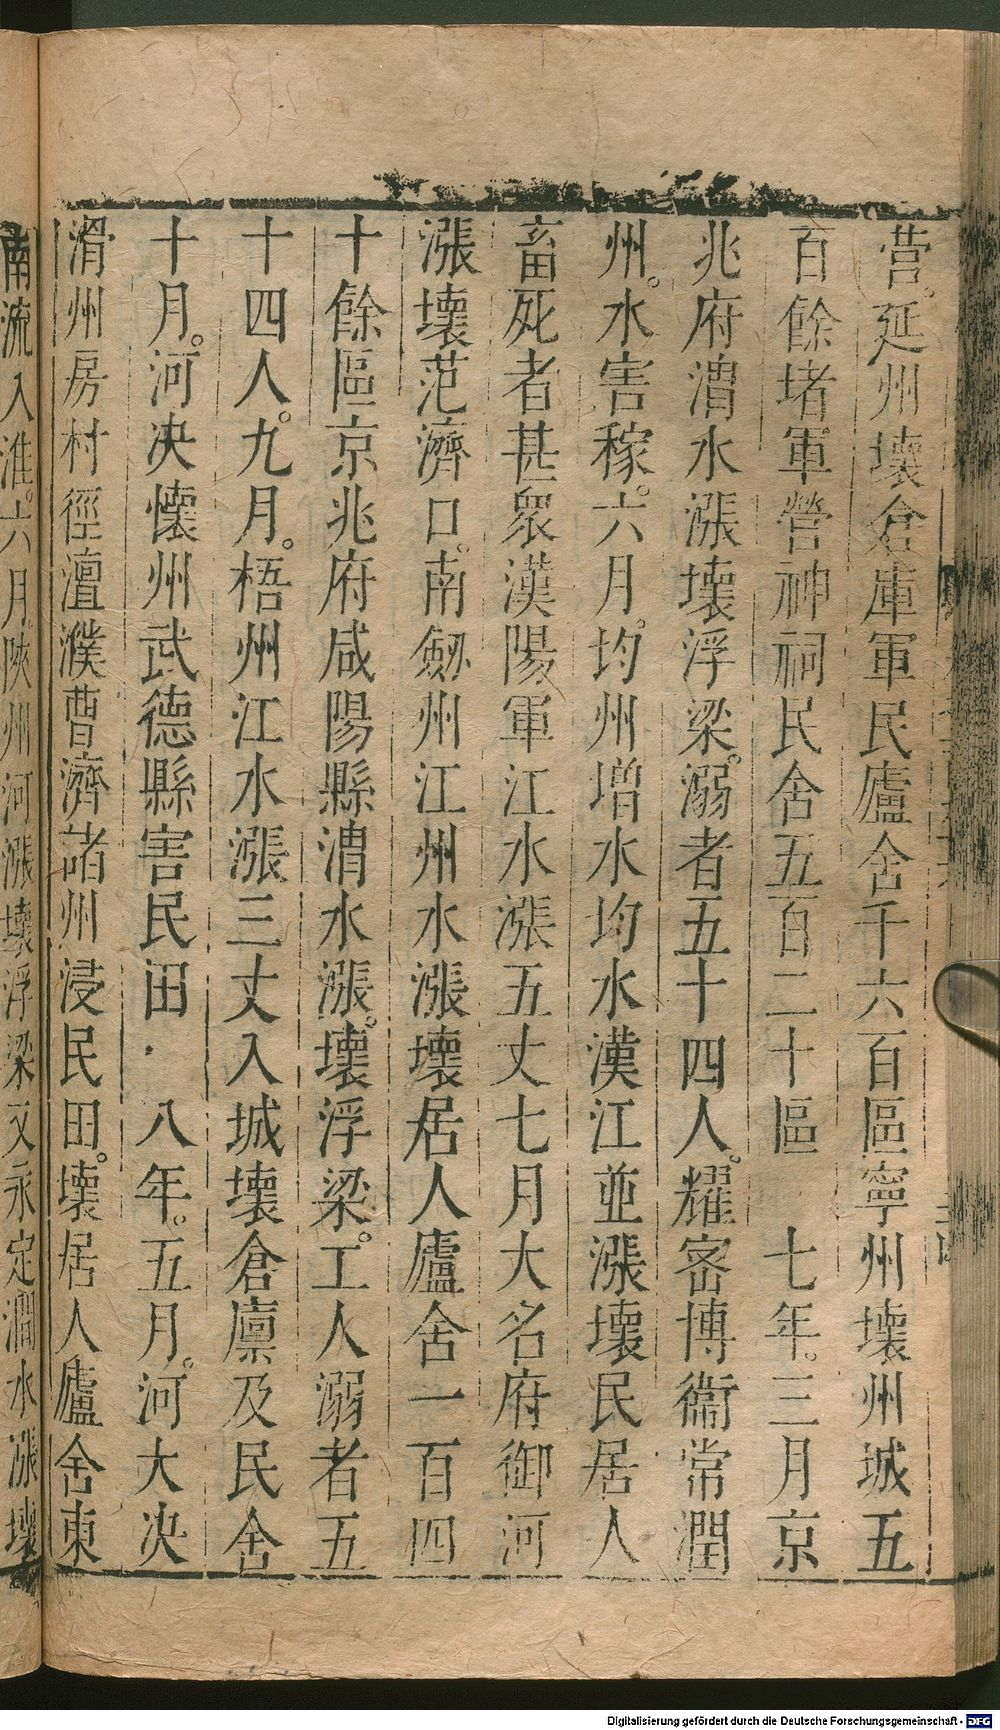 營。延州壞倉庫軍民廬舍千六百區寧州壞州城五
百餘堵軍營神祠民舍五百二十區　七年。三月京
兆府渭水漲壞浮梁。溺者五十四人。耀密博衞常潤
州。水害稼。六月。均州增水均水漢江並漲壞民居人
畜死者甚眾漢陽軍江水漲五丈七月大名府御河
漲壞范濟口。南劒州江州水漲壞居人廬舍一百四
十餘區京兆府咸陽縣渭水漲。壞浮梁。工人溺者五
十四人。九月。梧州江水漲三丈入城壞倉廩及民舍
十月。河決懷州武德縣害民田　八年。五月。河大決
滑州房村徑澶濮曹濟諸州浸民田。壞居人廬舍東
南流入淮。六月陝州河漲壞浮梁又永定澗水漲壞
Digitalisierung gefördert durch die Deutsche Forschungsgemeinschaft - DFG